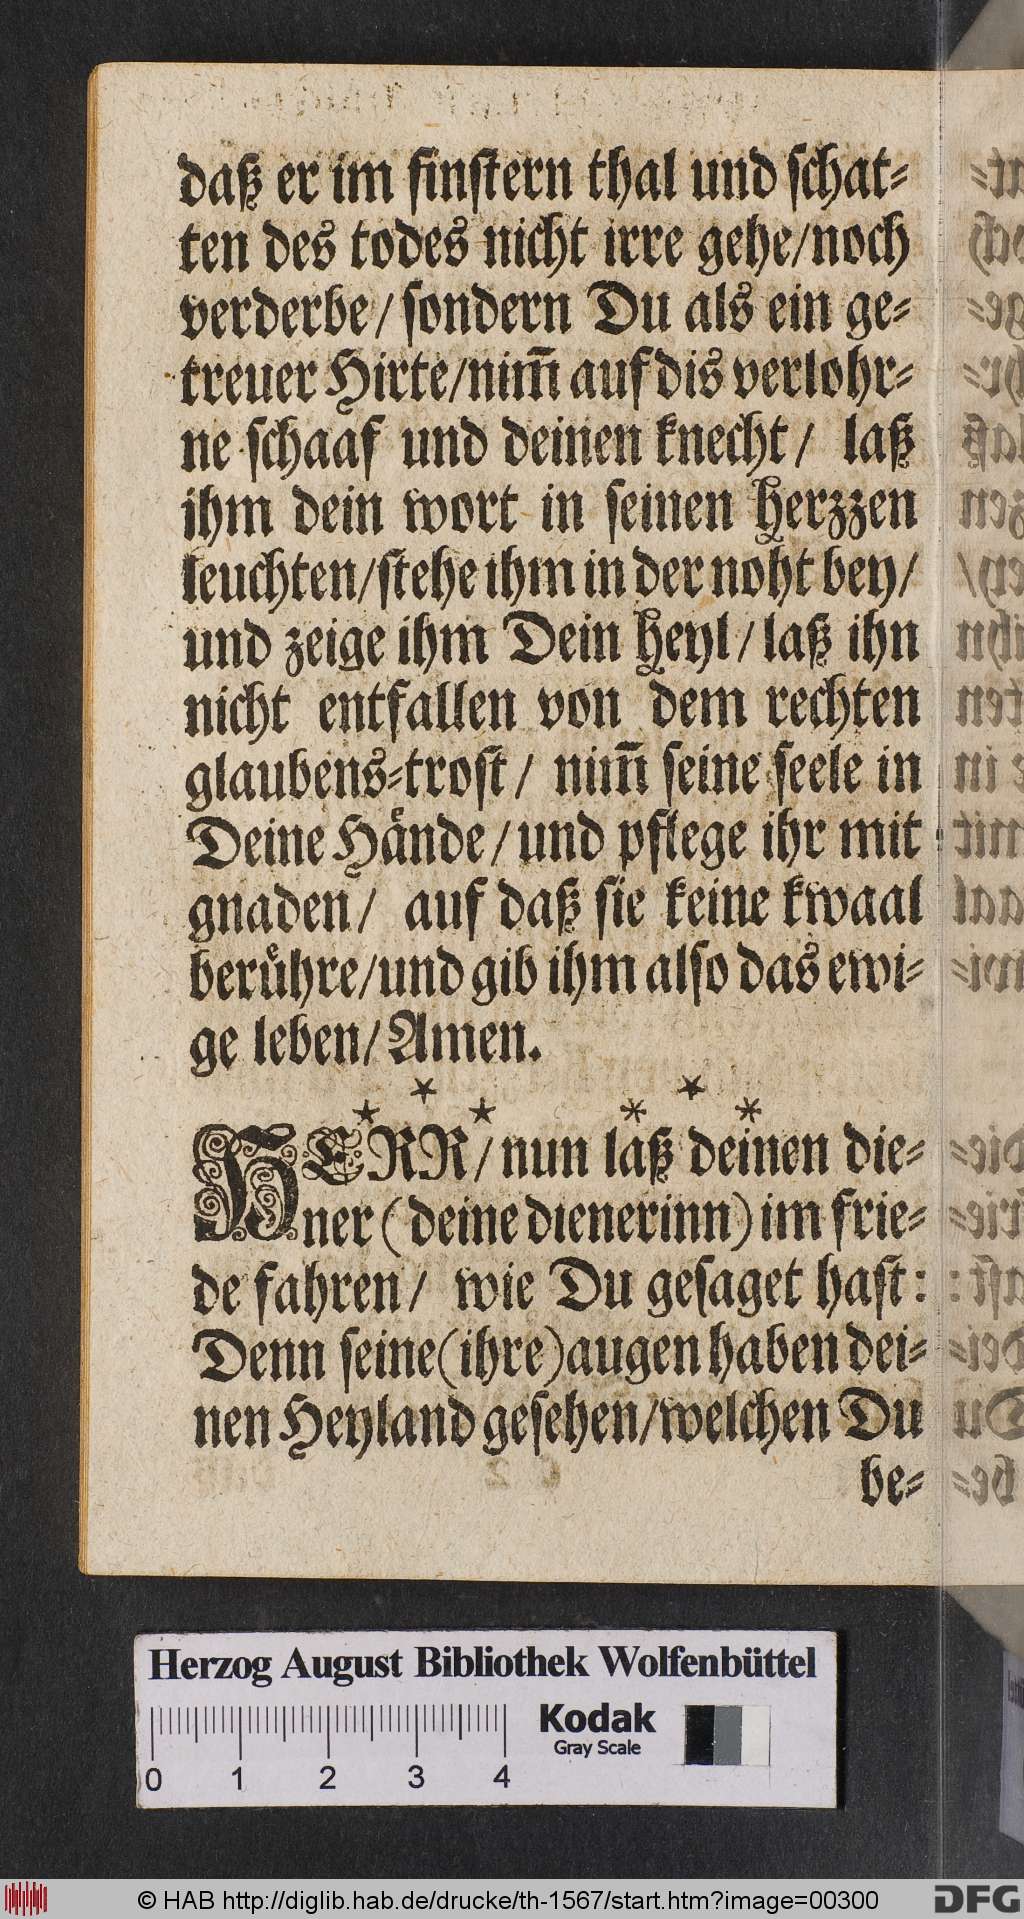 daß er im finstern thal und schat-
ten des todes nicht irre gehe/noch
verderbe/ sondern Du als ein ge-
treuer Hirte/nim̄ auf dis verlohr-
ne schaaf und deinen knecht/ laß
ihm dein wort in seinen herzzen
leuchten/stehe ihm in der noht bey/
und zeige ihm Dein heyl/ laß ihn
nicht entfallen von dem rechten
glaubens-trost/ nim̄ seine seele in
Deine Hånde/und pflege ihr mit
gnaden/ auf daß sie keine kwaal
berühre/und gib ihm also das ewi-
ge leben/ Amen.
* * * * * *
HERR/nun laß deinen die-
ner (deine dienerinn) im frie-
de fahren/ wie Du gesaget hast:
Denn seine(ihre)augen haben dei-
nen Heyland gesehen/welchen Du
be-
Herzog August Bibliothek Wolfenbüttel
Kodak
Gray Scale
0 1 2 3 4
© HAB http://diglib.hab.de/drucke/th-1567/start.htm?image=00300
DFG